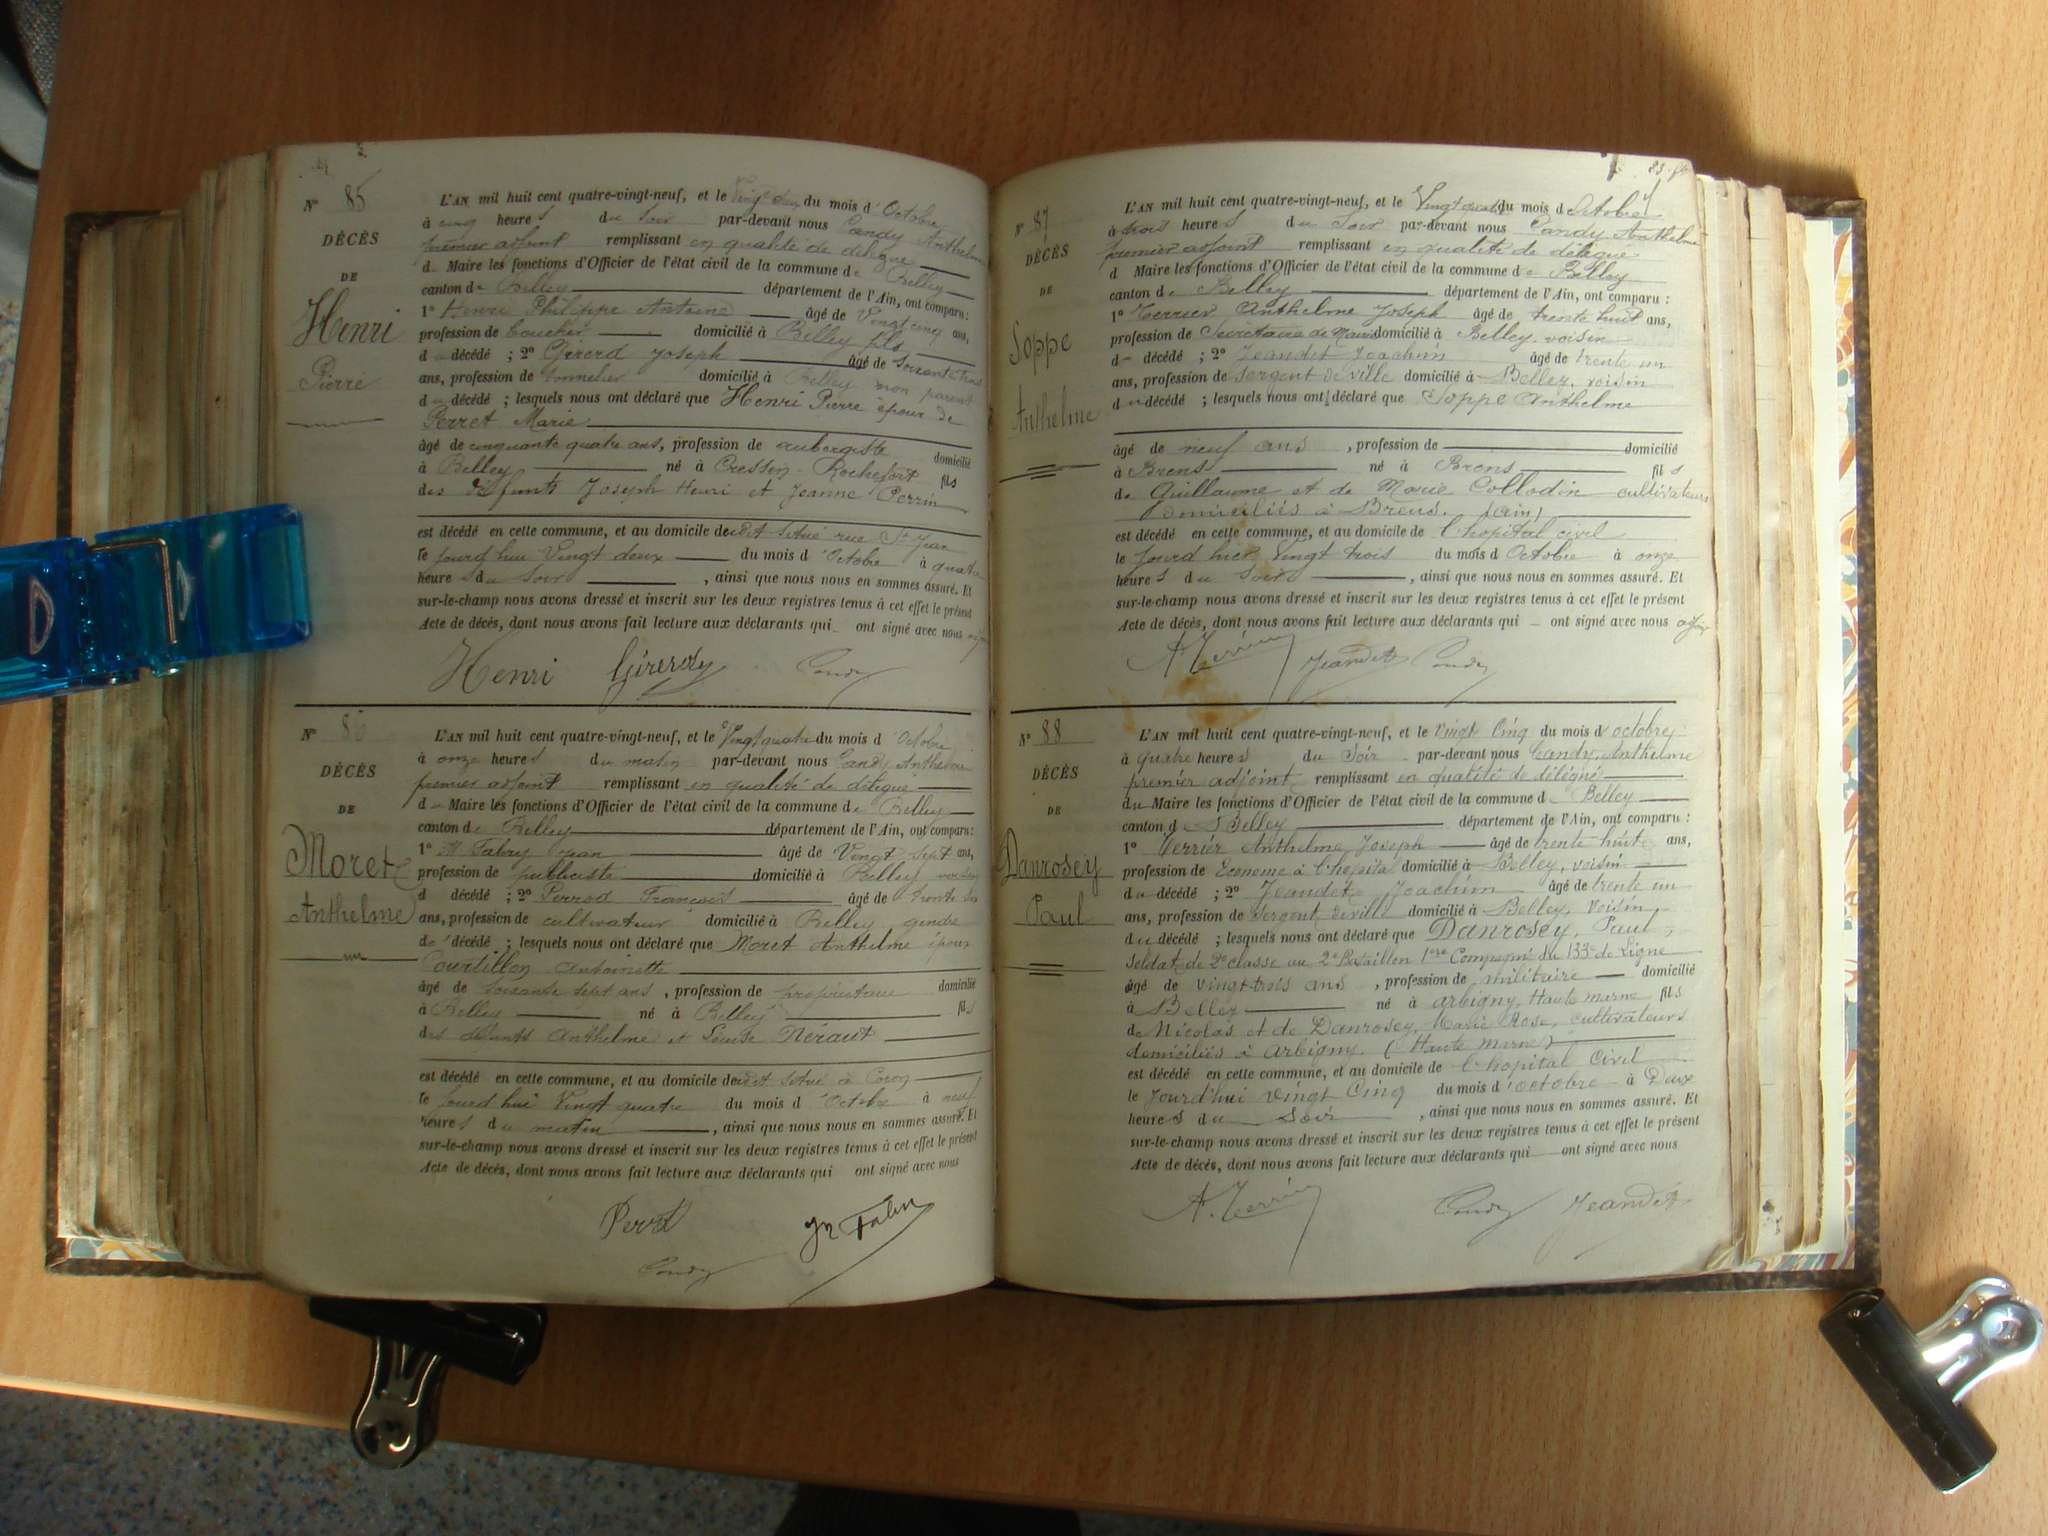 N° 85
DÉCÈS
DE
Henri
Pierre
L'AN mil huit cent quatre-vingt-neuf, et le Vingt deux du mois d'Octobre
à cinq heures du Soir par-devant nous Candy Anthelme
premier adjoint remplissant en qualité de délégué
du Maire les fonctions d'Officier de l'état civil de la commune de Belley
canton de Belley département de l'Ain, ont comparu :
1° Henri Philippe Antoine âgé de Vingt cinq ans,
profession de boucher domicilié à Belley fils
du décédé ; 2° Girerd Joseph âgé de Soixante trois
ans, profession de tonnelier domicilié à Belley non parent
du décédé ; lesquels nous ont déclaré que Henri Pierre époux de
Perret Marie
âgé de cinquante quatre ans, profession de aubergiste domicilié
à Belley né à Cressin-Rochefort fils
des défunts Joseph Henri et Jeanne Perrin
est décédé en cette commune, et au domicile dedit situé rue St Jean
le jourd'hui Vingt deux du mois d'Octobre à quatre
heures du Soir , ainsi que nous nous en sommes assuré. Et
sur-le-champ nous avons dressé et inscrit sur les deux registres tenus à cet effet le présent
Acte de décès, dont nous avons fait lecture aux déclarants qui ont signé avec nous
Henri Girerd Candy
N° 86
DÉCÈS
DE
Moret
Anthelme
L'AN mil huit cent quatre-vingt-neuf, et le Vingt quatre du mois d'Octobre
à onze heures du matin par-devant nous Candy Anthelme
premier adjoint remplissant en qualité de délégué
du Maire les fonctions d'Officier de l'état civil de la commune de Belley
canton de Belley département de l'Ain, ont comparu :
1° M Fabry Jean âgé de Vingt sept ans,
profession de publiciste domicilié à Belley voisin
d décédé ; 2° Perrod François âgé de trente
ans, profession de cultivateur domicilié à Belley, gendre
de décédé ; lesquels nous ont déclaré que Moret Anthelme époux
Courtillon Antoinette
âgé de soixante sept ans , profession de propriétaire domicilié
à Belley né à Belley fils
des défunts Anthelme et Louise Néraut
est décédé en cette commune, et au domicile dedit situé à Coron
le jourd'hui Vingt quatre du mois d'Octobre à neuf
heures du matin , ainsi que nous nous en sommes assuré. Et
sur-le-champ nous avons dressé et inscrit sur les deux registres tenus à cet effet le présent
Acte de décès, dont nous avons fait lecture aux déclarants qui ont signé avec nous
Candy
N° 87
DÉCÈS
DE
Soppe
Anthelme
L'AN mil huit cent quatre-vingt-neuf, et le Vingt quatre du mois d Octobre
à trois heures du Soir par-devant nous Candy Anthelme
premier adjoint remplissant en qualité de délégué
d Maire les fonctions d'Officier de l'état civil de la commune de Belley
canton de Belley département de l'Ain, ont comparu :
1° Terrier Anthelme Joseph âgé de trente huit ans,
profession de Secrétaire de Mairie domicilié à Belley, voisin
du décédé ; 2° Jeandet Joachim âgé de trente un
ans, profession de Sergent de ville domicilié à Belley, voisin
du décédé ; lesquels nous ont déclaré que Soppe Anthelme
âgé de neuf ans , profession de domicilié
à Brens né à Brens fils
de Guillaume et de Marie Collodin cultivateurs
domiciliés à Brens. (Ain)
est décédé en cette commune, et au domicile de l'hopital civil
le Jourd'hier Vingt trois du mois d'Octobre à onze
heures du Soir , ainsi que nous nous en sommes assuré. Et
sur-le-champ nous avons dressé et inscrit sur les deux registres tenus à cet effet le présent
Acte de décès, dont nous avons fait lecture aux déclarants qui ont signé avec nous
A. Terrier Jeandet Candy
N° 88
DÉCÈS
DE
Danrosey
Paul
L'AN mil huit cent quatre-vingt-neuf, et le vingt Cinq du mois d'octobre
à quatre heures du Soir par-devant nous Candy, Anthelme
premier adjoint remplissant en qualité de délégué
du Maire les fonctions d'Officier de l'état civil de la commune de Belley
canton de Belley département de l'Ain, ont comparu :
1° Terrier Anthelme, Joseph âgé de trente huit ans,
profession de Econome à l'hopital domicilié à Belley, voisin
du décédé ; 2° Jeandet Joachim âgé de trente un
ans, profession de Sergent de ville domicilié à Belley, voisin
du décédé ; lesquels nous ont déclaré que Danrosey, Paul,
Soldat de 2e classe au 2e Bataillon 1ere Compagnie du 133e de Ligne
âgé de vingt-trois ans , profession de militaire domicilié
à Belley né à arbigny, Haute marne fils
de Nicolas et de Danrosey, Marie Rose, cultivateurs
domiciliés à arbigny. (Haute Marne)
est décédé en cette commune, et au domicile de l'hopital Civil
le Jourd'hui vingt Cinq du mois d'octobre à Deux
heures du Soir , ainsi que nous nous en sommes assuré. Et
sur-le-champ nous avons dressé et inscrit sur les deux registres tenus à cet effet le présent
Acte de décès, dont nous avons fait lecture aux déclarants qui ont signé avec nous
A. Terrier Candy Jeandet